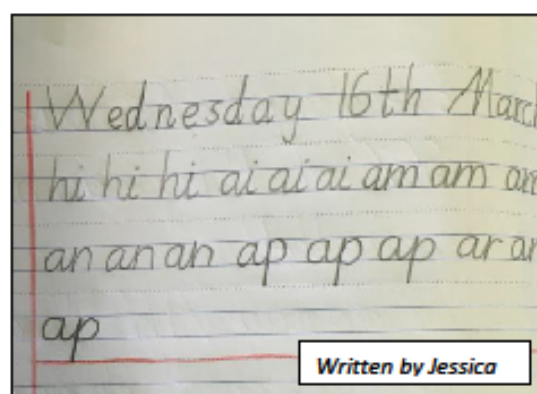 Wednesday 16th March
hi hi hi ai ai ai am am am
an an an ap ap ap ar ar
ap
Written by Jessica